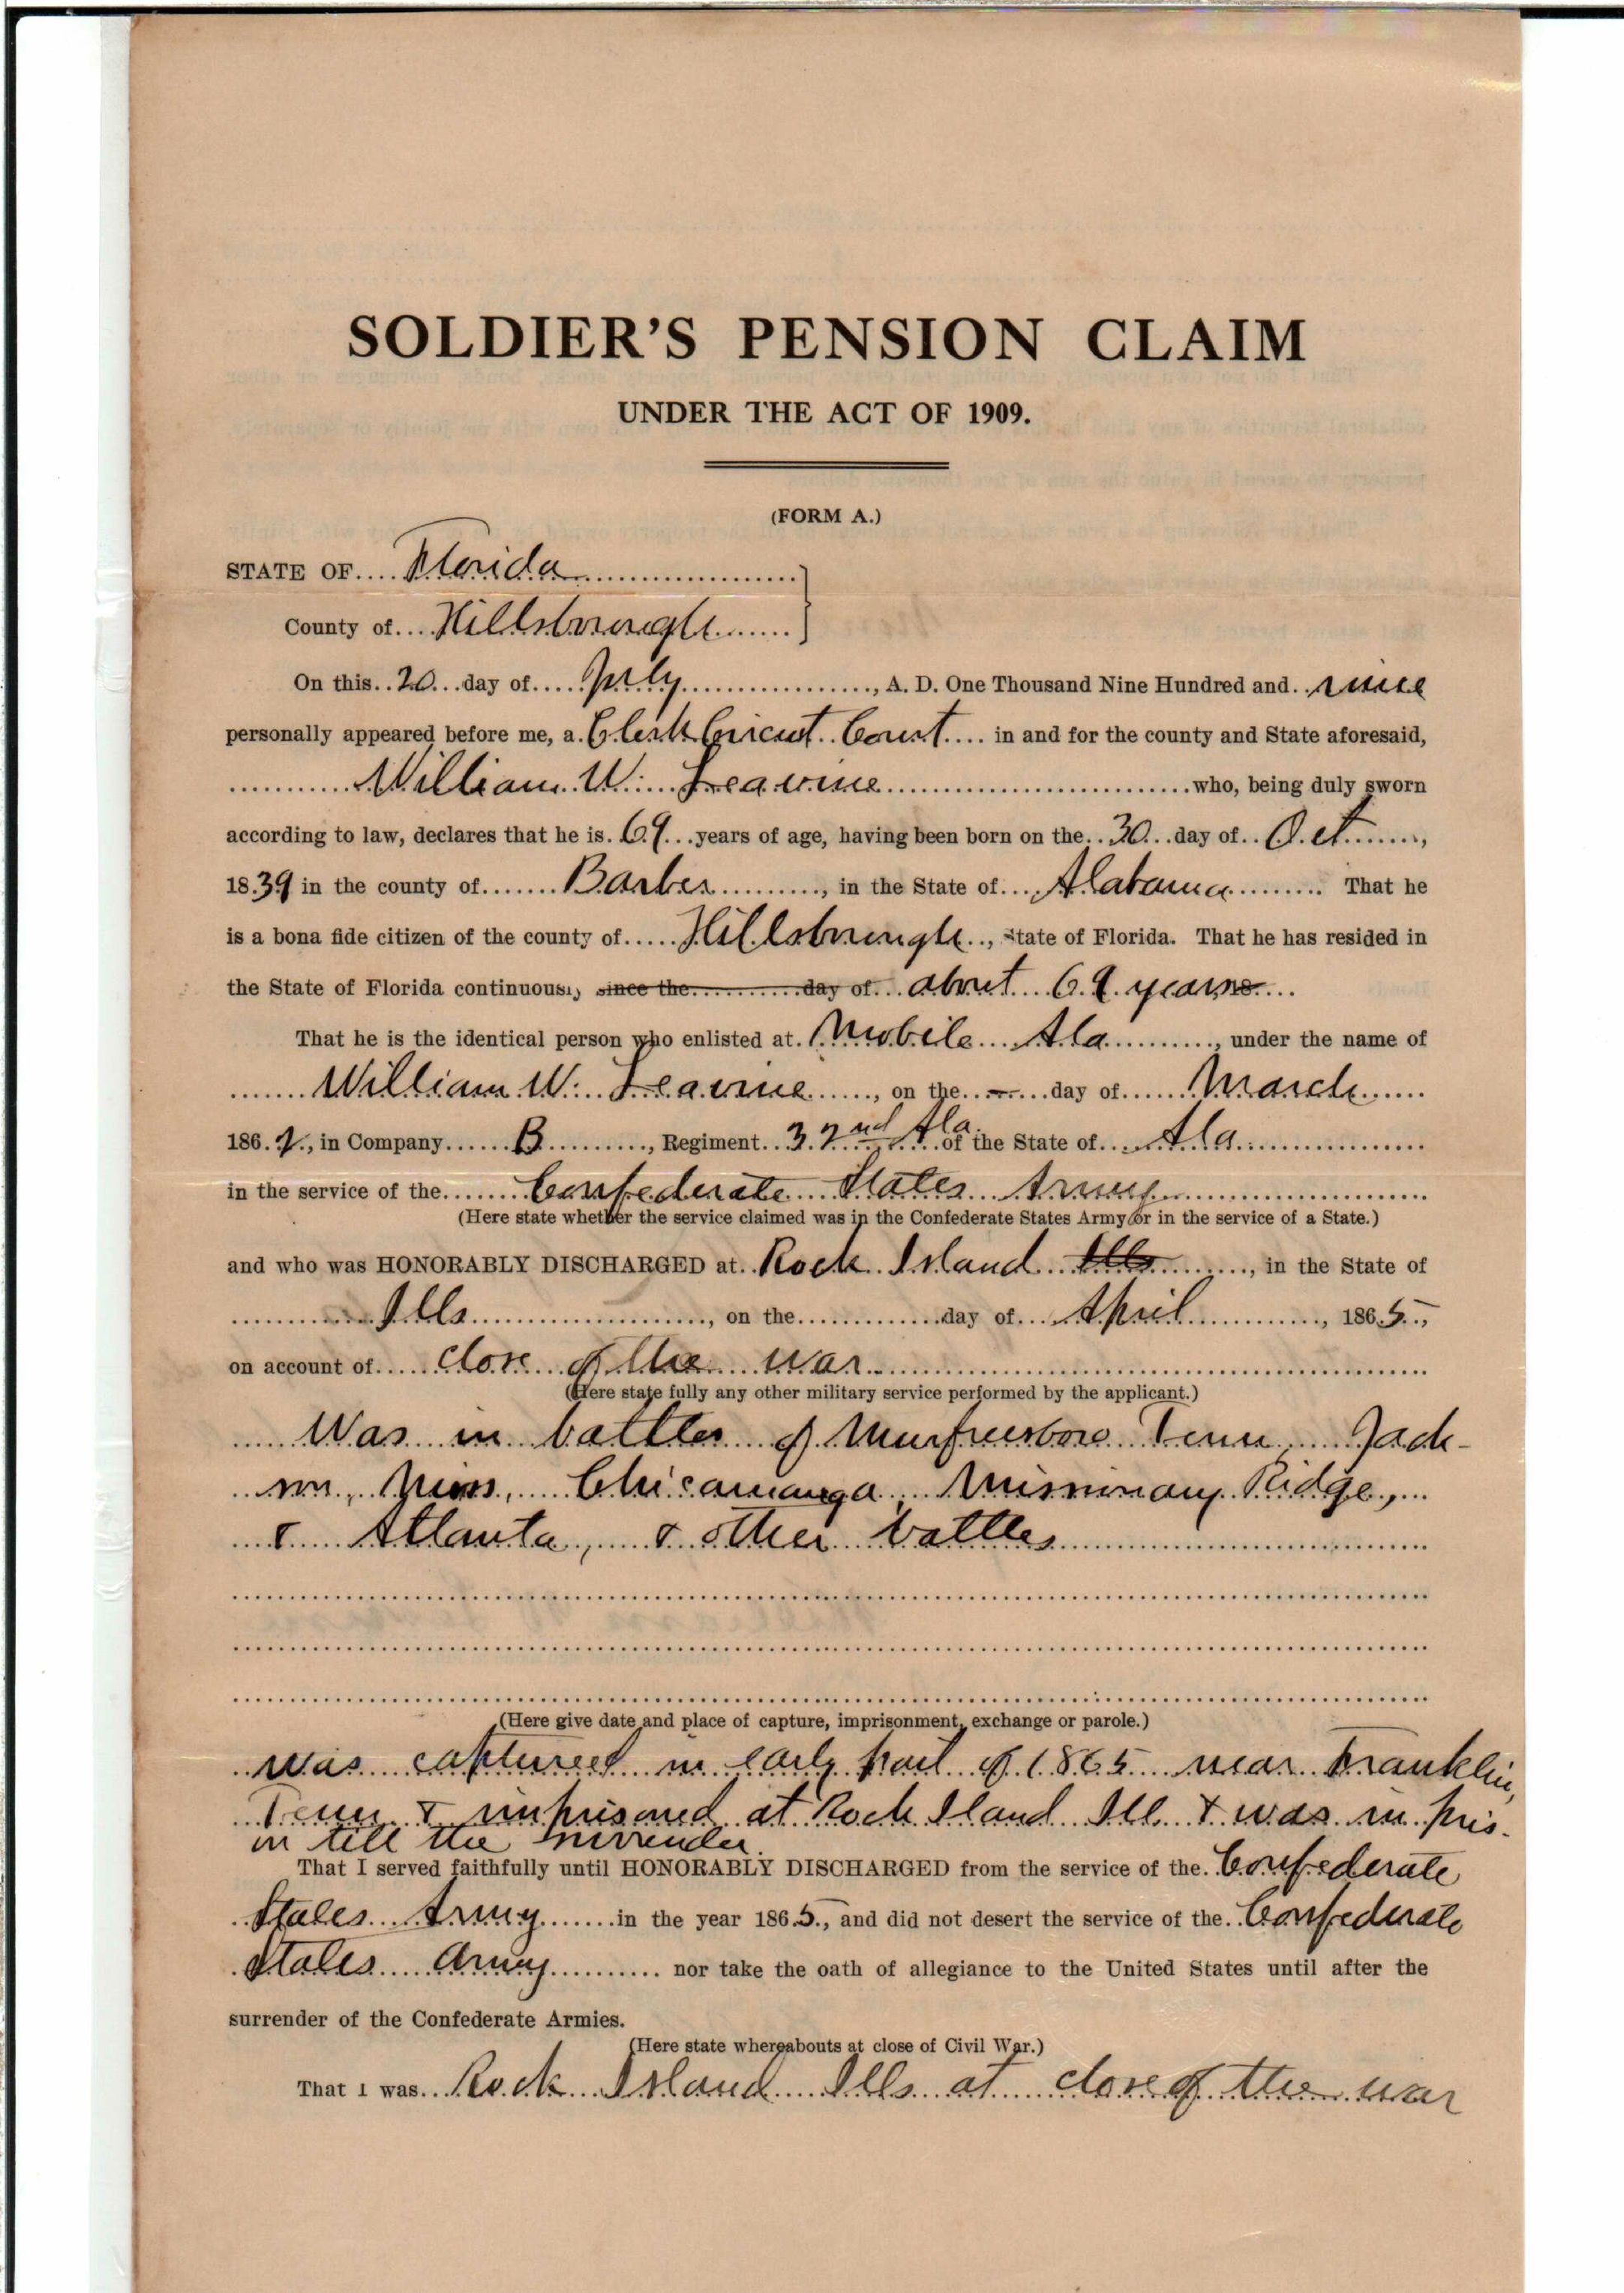 SOLDIER'S PENSION CLAIM
UNDER THE ACT OF 1909.
(FORM A.)
STATE OF Florida
County of Hillsborough
On this 20 day of July, A. D. One Thousand Nine Hundred and nine
personally appeared before me, a Clerk Circuit Court in and for the county and State aforesaid,
William W. Leavine who, being duly sworn
according to law, declares that he is 69 years of age, having been born on the 30 day of Oct,
1839 in the county of Barber, in the State of Alabama That he
is a bona fide citizen of the county of Hillsborough, State of Florida. That he has resided in
the State of Florida continuously since the day of about 69 years
That he is the identical person who enlisted at Mobile Ala, under the name of
William W. Leavine, on the — day of March
1862, in Company B, Regiment 32nd Ala of the State of Ala
in the service of the Confederate States Army
(Here state whether the service claimed was in the Confederate States Army or in the service of a State.)
and who was HONORABLY DISCHARGED at Rock Island Ills, in the State of
Ills, on the day of April, 1865,
on account of close of the war
(Here state fully any other military service performed by the applicant.)
Was in battles of Murfreesboro Tenn, Jack-
son, Miss, Chicamauga, Missionary Ridge,
& Atlanta, & other battles
(Here give date and place of capture, imprisonment, exchange or parole.)
was captured in early part of 1865 near Franklin,
Tenn & imprisoned at Rock Iland Ill. & was in pris-
on till the surrender.
That I served faithfully until HONORABLY DISCHARGED from the service of the Confederate
States Army in the year 1865, and did not desert the service of the Confederate
States Army nor take the oath of allegiance to the United States until after the
surrender of the Confederate Armies.
(Here state whereabouts at close of Civil War.)
That I was Rock Island Ills at close of the war